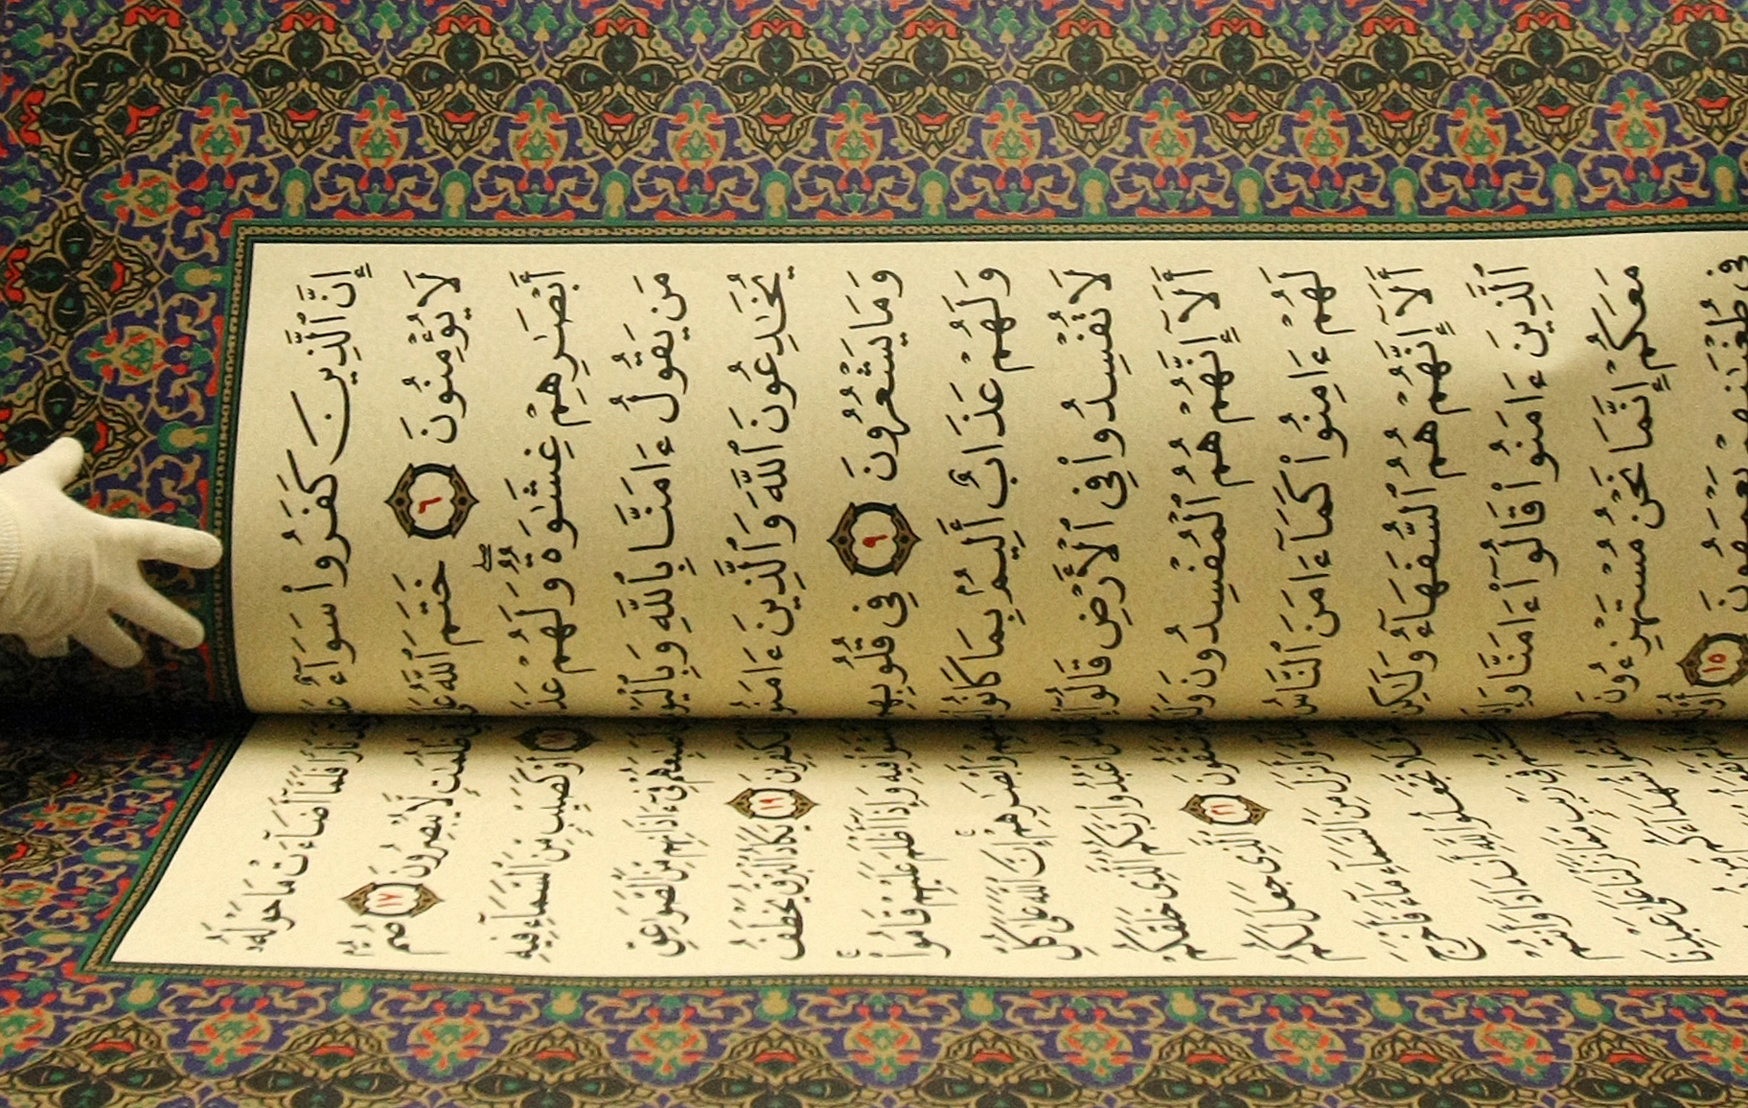 إِنَّ ٱلَّذِينَ كَفَرُوا۟ سَوَآءٌ
لَا يُؤْمِنُونَ ٦ خَتَمَ ٱللَّهُ
أَبْصَـٰرِهِمْ غِشَـٰوَةٌ ۖ وَلَهُمْ
مَن يَقُولُ ءَامَنَّا بِٱللَّهِ
يُخَـٰدِعُونَ ٱللَّهَ وَٱلَّذِينَ
وَمَا يَشْعُرُونَ ٩ فِى قُلُوبِهِم
وَلَهُمْ عَذَابٌ أَلِيمٌۢ بِمَا
لَا تُفْسِدُوا۟ فِى ٱلْأَرْضِ
أَلَآ إِنَّهُمْ هُمُ ٱلْمُفْسِدُونَ
لَهُمْ ءَامِنُوا۟ كَمَآ ءَامَنَ ٱلنَّاسُ
أَلَآ إِنَّهُمْ هُمُ ٱلسُّفَهَآءُ وَلَـٰكِن
ٱلَّذِينَ ءَامَنُوا۟ قَالُوٓا۟ ءَامَنَّا
مَعَكُمْ إِنَّمَا نَحْنُ مُسْتَهْزِءُونَ
فِى طُغْيَـٰنِهِمْ يَعْمَهُونَ ١٥
نَارًا فَلَمَّآ أَضَآءَتْ مَا حَوْلَهُۥ
ظُلُمَـٰتٍ لَّا يُبْصِرُونَ ١٧ صُمٌّۢ
١٨ أَوْ كَصَيِّبٍ مِّنَ ٱلسَّمَآءِ فِيهِ
فِىٓ ءَاذَانِهِم مِّنَ ٱلصَّوَٰعِقِ
١٩ يَكَادُ ٱلْبَرْقُ يَخْطَفُ
فِيهِ وَإِذَآ أَظْلَمَ عَلَيْهِمْ قَامُوا۟ ۚ
وَأَبْصَـٰرِهِمْ ۚ إِنَّ ٱللَّهَ عَلَىٰ كُلِّ
ٱعْبُدُوا۟ رَبَّكُمُ ٱلَّذِى خَلَقَكُمْ
تَتَّقُونَ ٢١ ٱلَّذِى جَعَلَ لَكُمُ
وَأَنزَلَ مِنَ ٱلسَّمَآءِ مَآءً فَأَخْرَجَ
فَلَا تَجْعَلُوا۟ لِلَّهِ أَندَادًا وَأَنتُمْ
فِى رَيْبٍ مِّمَّا نَزَّلْنَا عَلَىٰ عَبْدِنَا